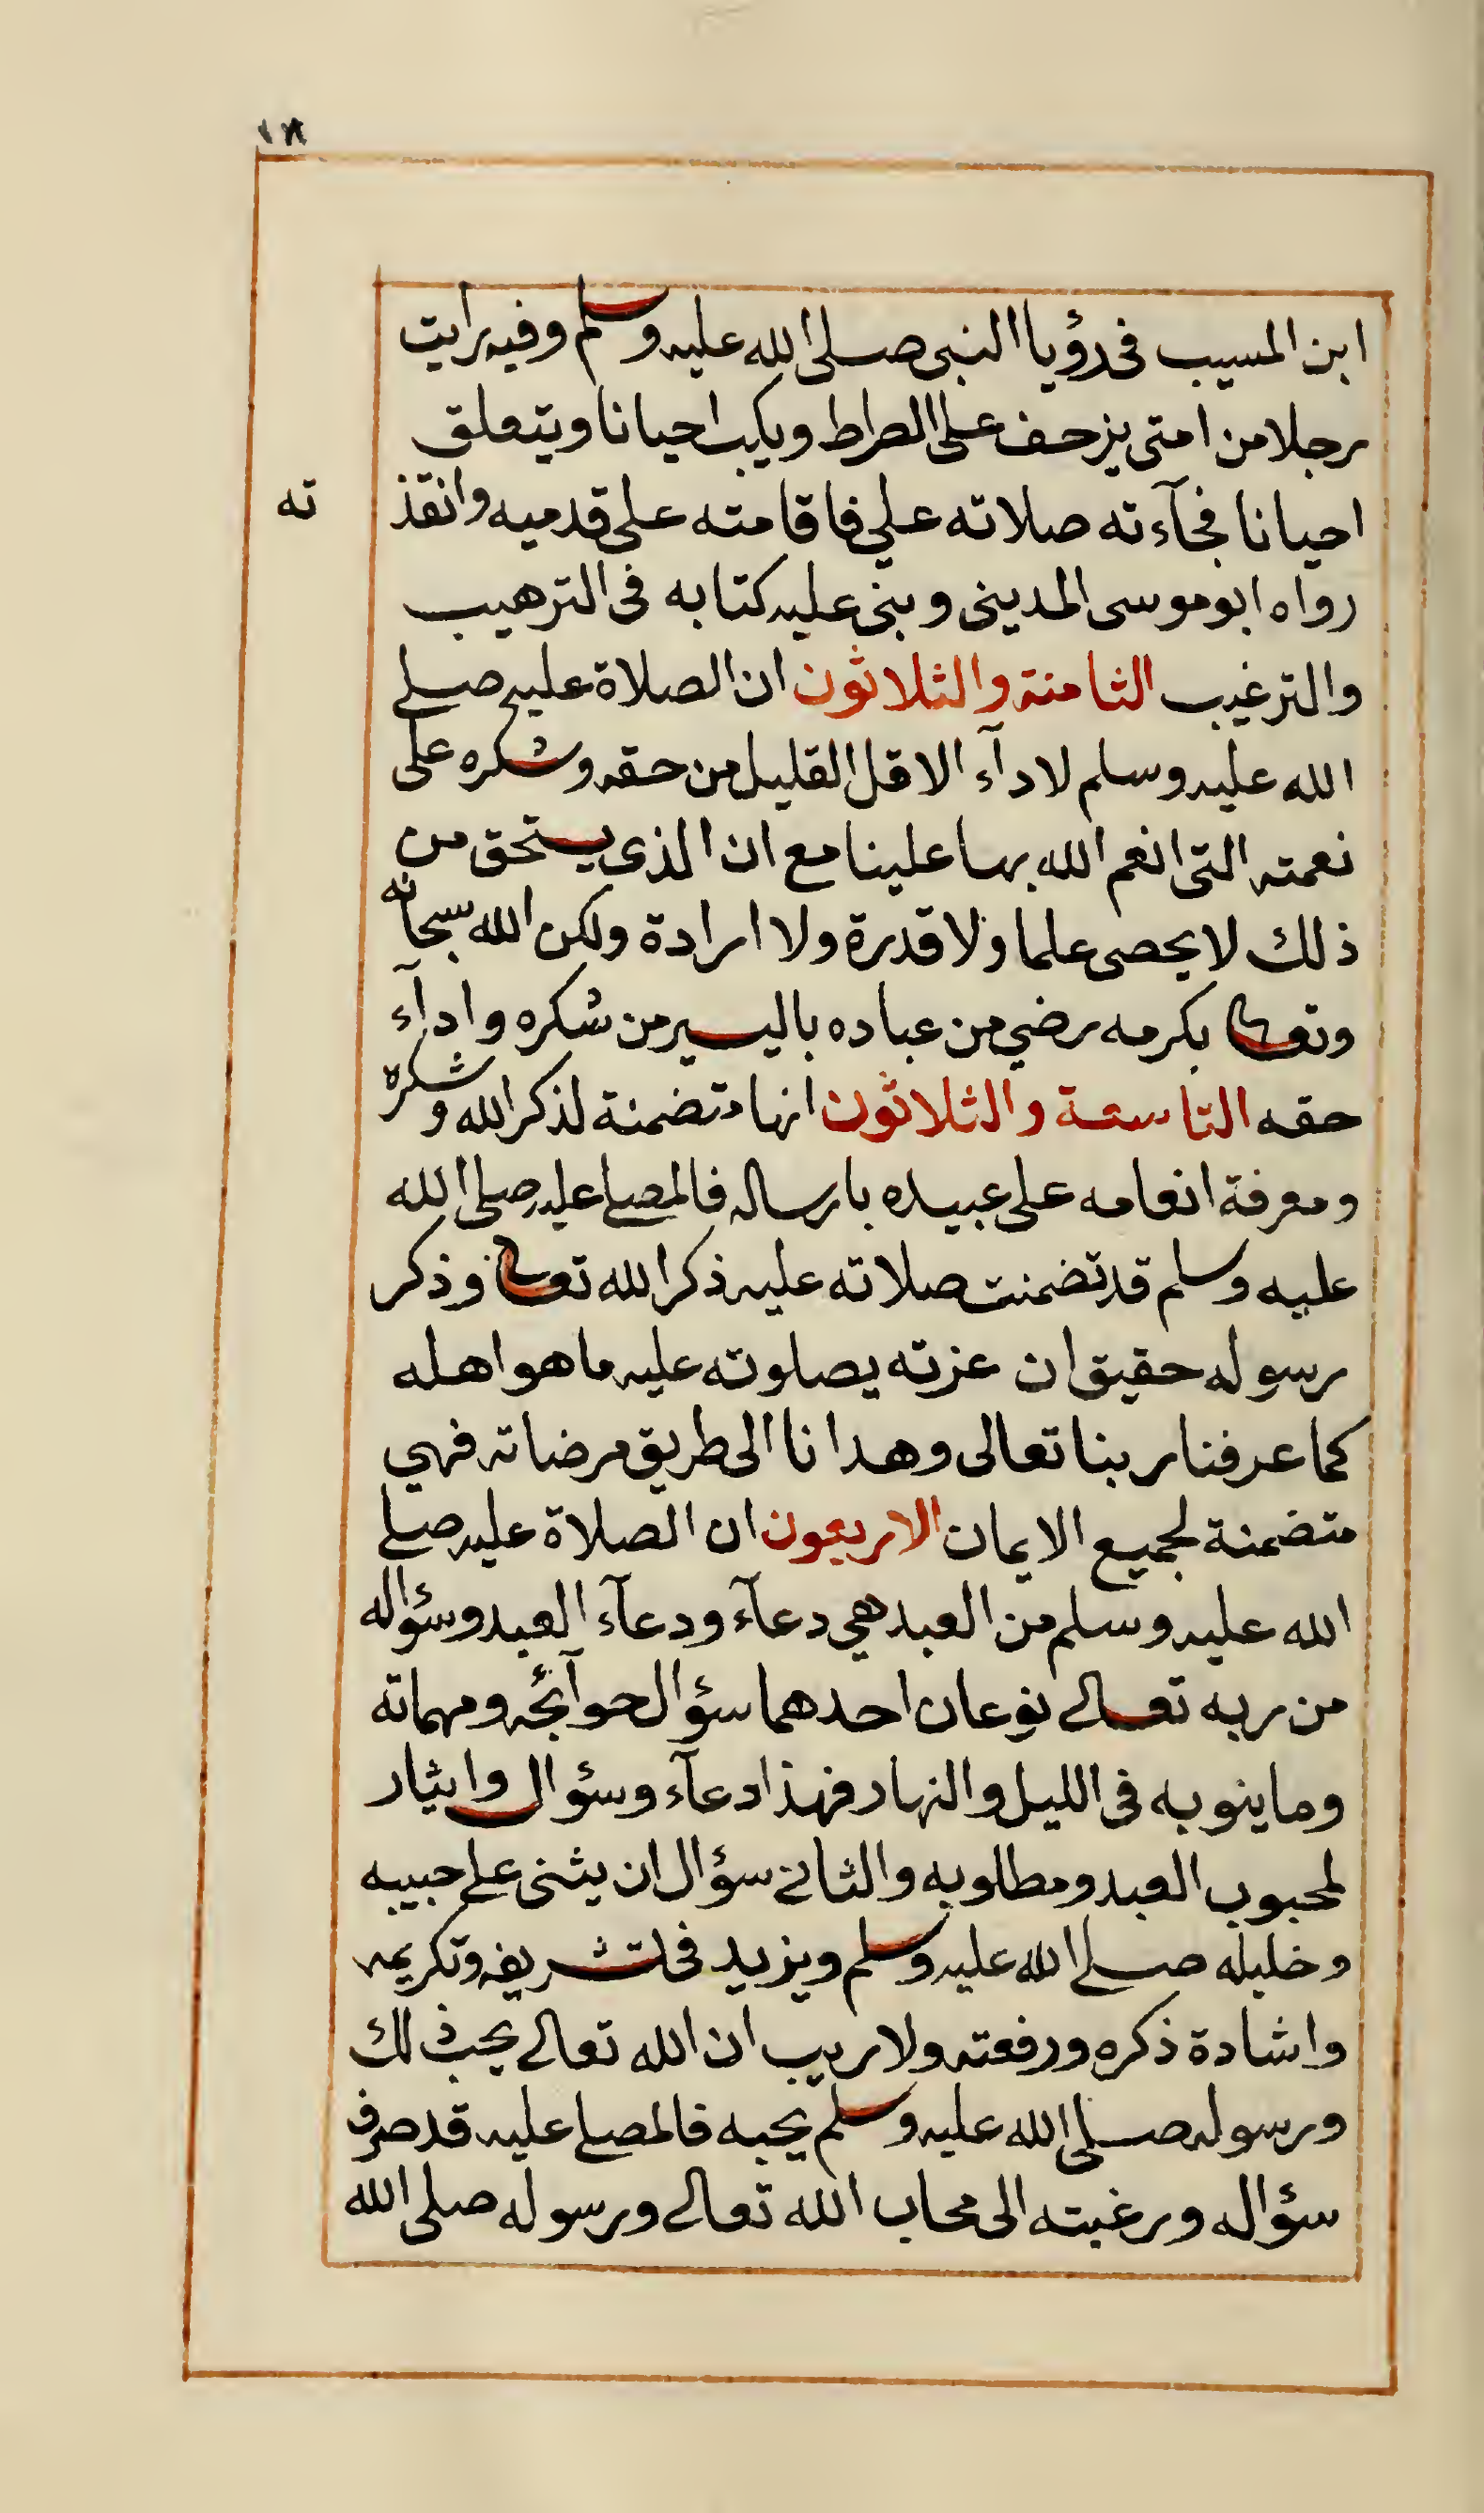 ابن المسيب فى رؤيا النبى صلى الله عليه وسلم وفيه رايت
رجلا من امتى يزحف على الصراط ويكب احيانا ويتعلق
احيانا فجآءته صلاته علي فاقامته على قدميه وانقذ
ته
رواه ابو موسى المدينى وبنى عليه كتابه فى الترهيب
والترغيب الثامنة والثلاثون ان الصلاة عليه صلى
الله عليه وسلم لادآء الاقل القليل من حقه وشكره على
نعمته التى انعم الله بها علينا مع ان الذى يستحق من
ذلك لا يحصى علما ولا قدرة ولا ارادة ولكن الله سبحانه
وتعالى بكرمه رضي من عباده باليسير من شكره واداء
حقه التاسعة والثلاثون انها متضمنة لذكر الله وشكره
ومعرفة انعامه على عبيده بارساله فالمصلى عليه صلى الله
عليه وسلم قد تضمنت صلاته عليه ذكر الله تعالى وذكر
رسوله حقيق ان عزته يصلوته عليه ما هو اهله
كما عرفنا ربنا تعالى وهدانا الى طريق مرضاته فهي
متضمنة لجميع الايمان الاربعون ان الصلاة عليه صلى
الله عليه وسلم من العبد هي دعآء ودعآء العبد وسؤاله
من ربه تعالى نوعان احدهما سؤال حوآئجه ومهماته
وما ينوبه فى الليل والنهار فهذا دعآء وسؤال وايثار
لمحبوب العبد ومطلوبه والثانى سؤال ان يثنى على حبيبه
وخليله صلى الله عليه وسلم ويزيد فى تشريفه وتكريمه
واشادة ذكره ورفعته ولا ريب ان الله تعالى يحب ذلك
ورسوله صلى الله عليه وسلم يحبه فالمصلى عليه قد صرف
سؤاله ورغبته الى محاب الله تعالى ورسوله صلى الله